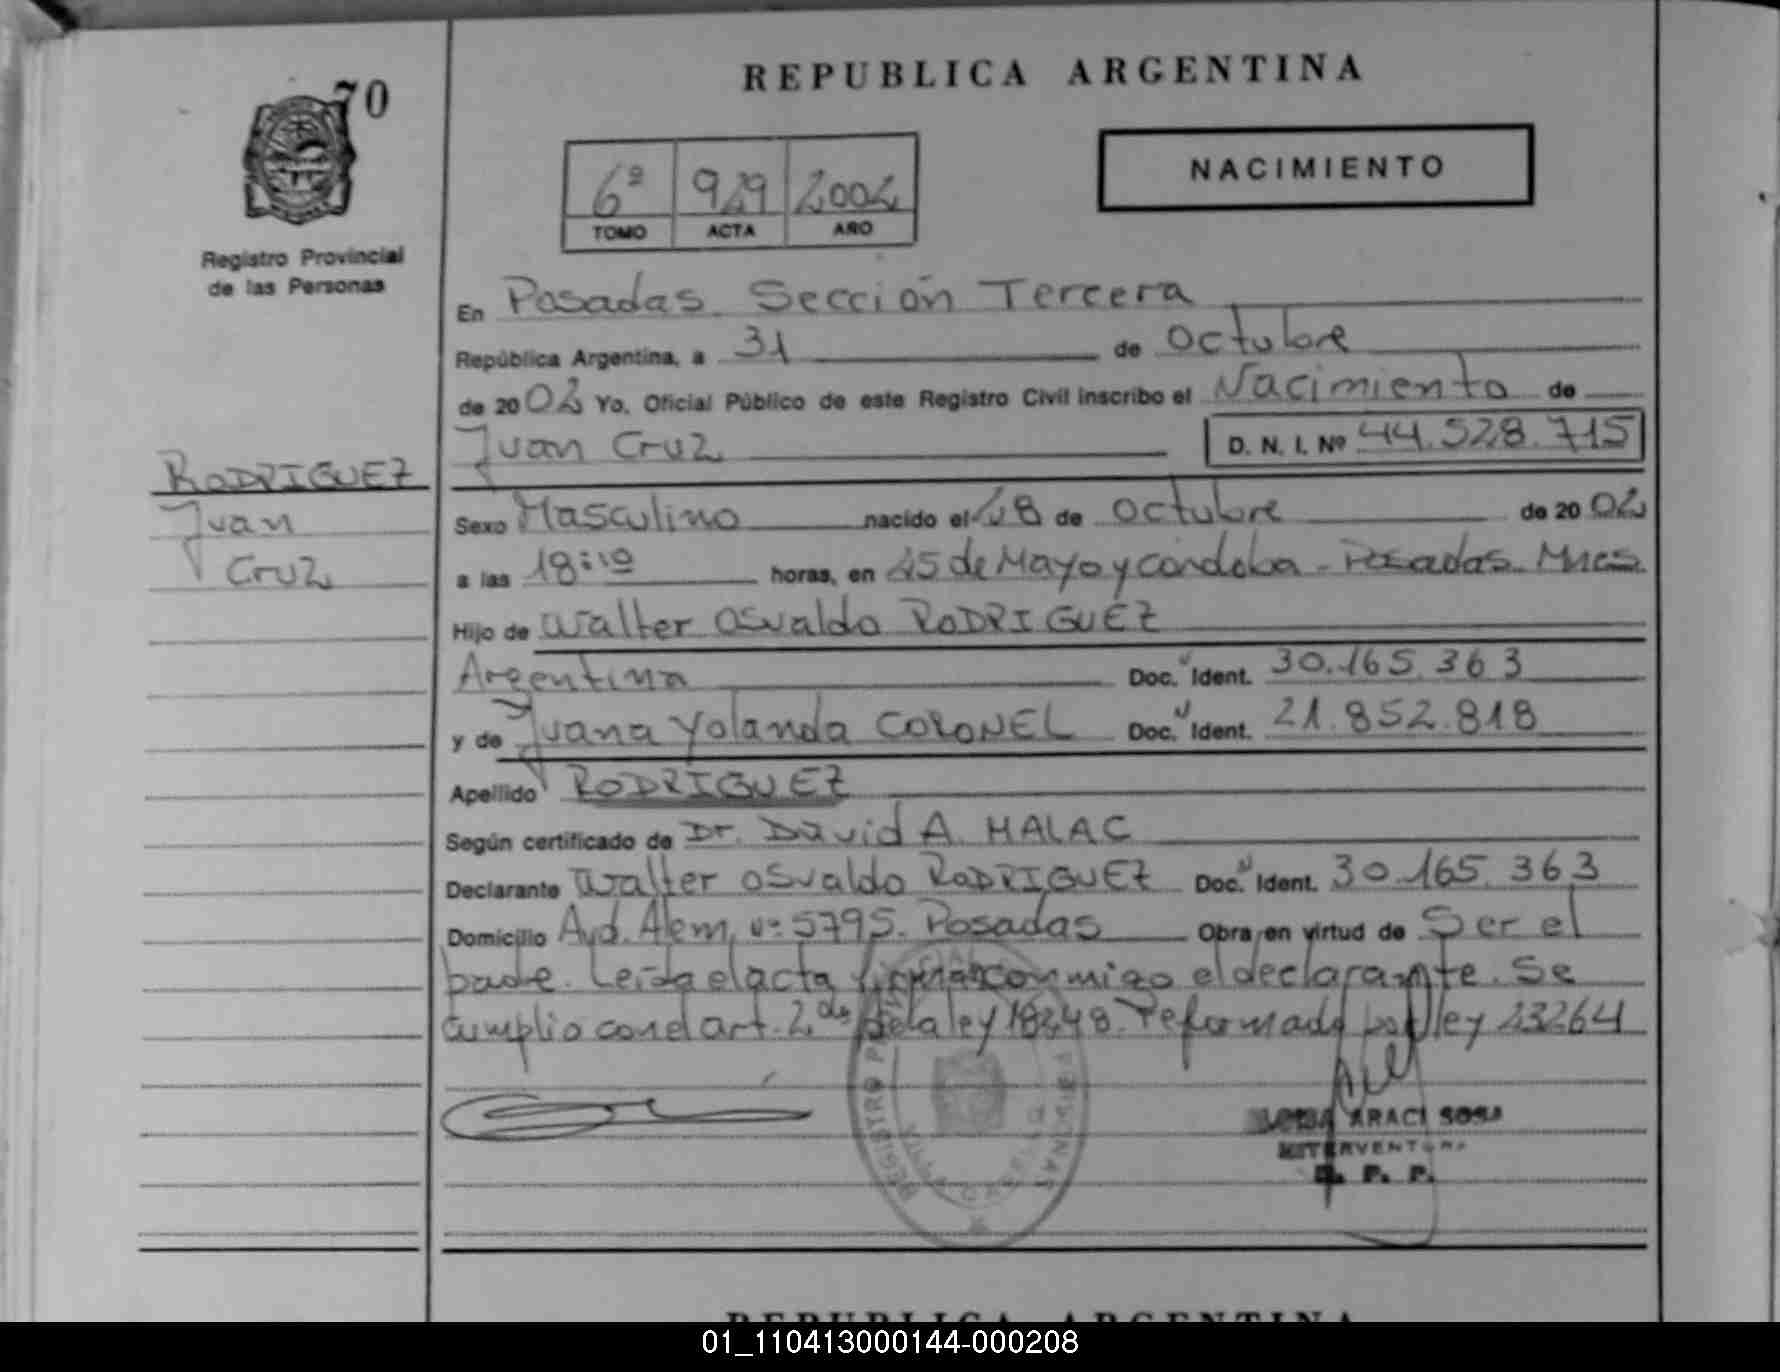 70
REPUBLICA ARGENTINA
6º 929 2002
TOMO ACTA AÑO
NACIMIENTO
Registro Provincial
de las Personas
En Posadas Sección Tercera
República Argentina, a 31 de Octubre
de 2002 Yo, Oficial Público de este Registro Civil inscribo el Nacimiento de
Juan Cruz D. N. I. Nº 44.528.715
RODRIGUEZ
Juan
Cruz
Sexo Masculino nacido el 28 de octubre de 2002
a las 18:10 horas, en 25 de Mayo y cordoba - Posadas. Mnes.
Hijo de Walter Osvaldo RODRIGUEZ
Argentina Doc. Ident. 30.165.363
y de Juana Yolanda CORONEL Doc. Ident. 21.852.818
Apellido RODRIGUEZ
Según certificado de Dr. David A. MALAC
Declarante Walter Osvaldo RODRIGUEZ Doc. Ident. 30.165.363
Domicilio Avd. Alem nº 5795. Posadas Obra en virtud de Ser el
padre. Leida el acta firma conmigo el declarante. Se
cumplio con el art. 2 de la ley 18248. Reformado por ley 23264
REGISTRO PERSONAS
ARACI SOSA
INTERVENTORA
R. P. P.
REPUBLICA ARGENTINA
01_110413000144-000208